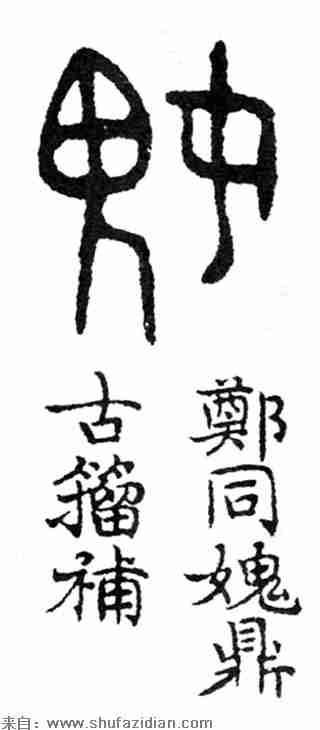 媿
鄭同媿鼎
古籀補
来自：www.shufazidian.com